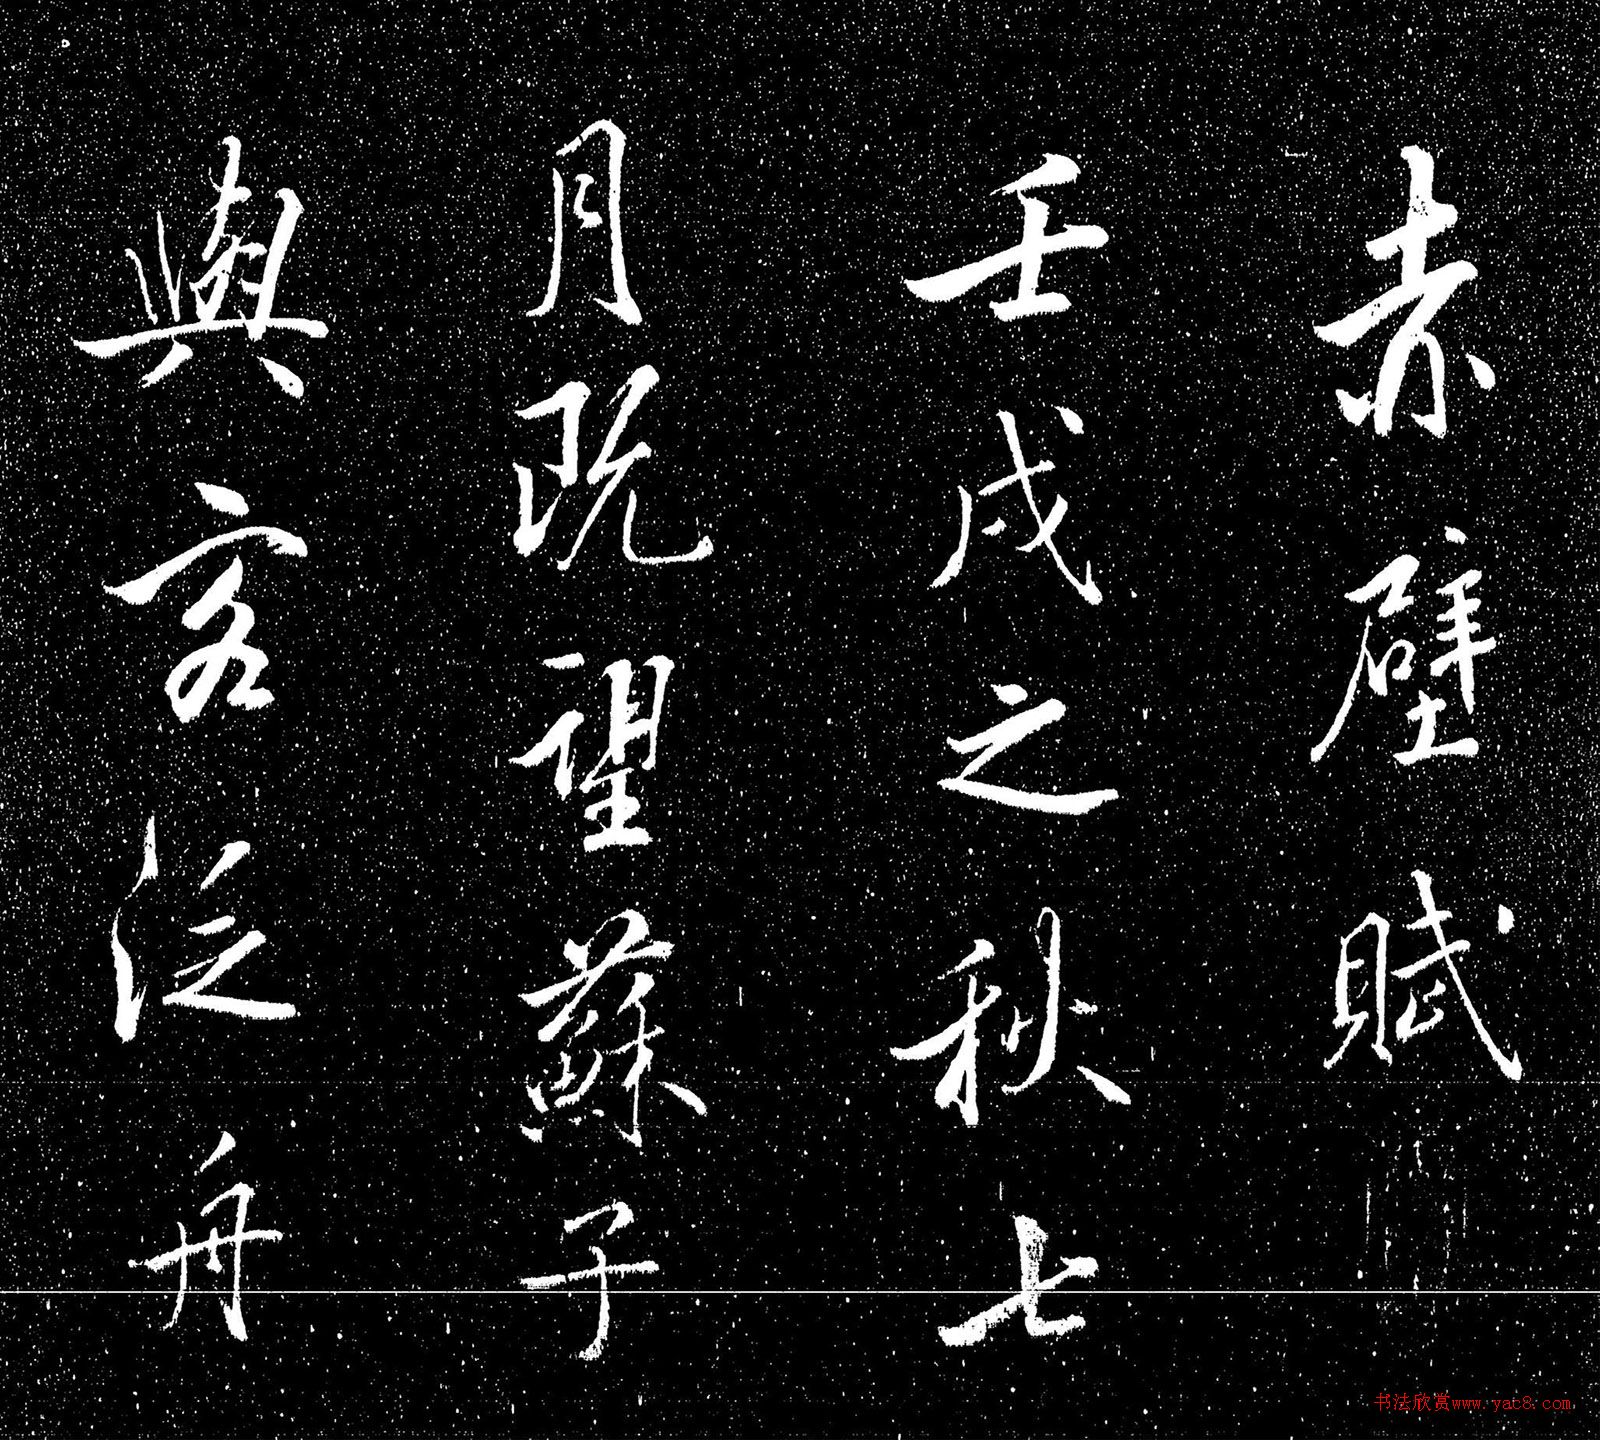 赤壁賦
壬戌之秋七
月既望蘇子
與客泛舟
书法欣赏www.yac8.com